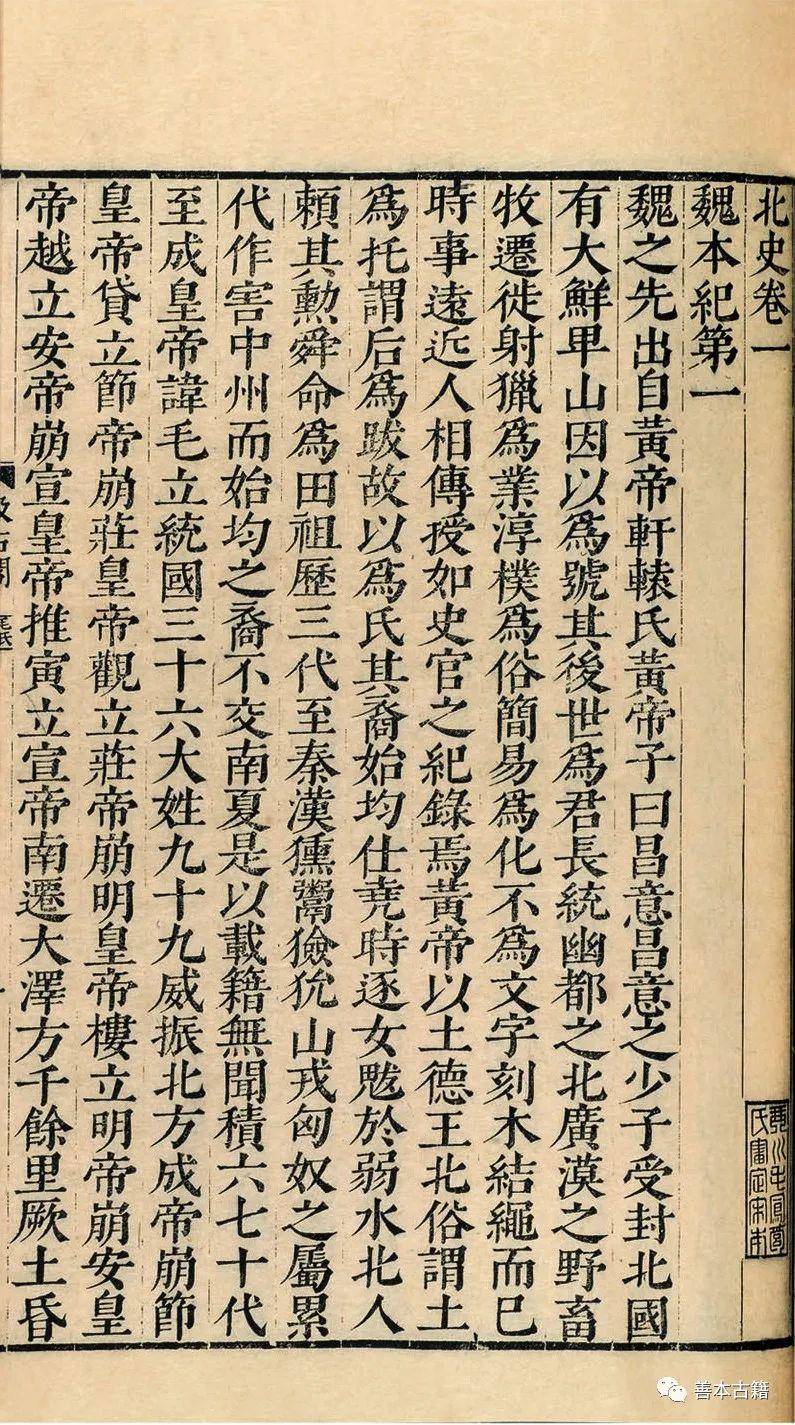 北史卷一
魏本紀第一
魏之先出自黃帝軒轅氏黃帝子曰昌意昌意之少子受封北國
有大鮮卑山因以爲號其後世爲君長統幽都之北廣漠之野畜
牧遷徙射獵爲業淳樸爲俗簡易爲化不爲文字刻木結繩而已
時事遠近人相傳授如史官之紀錄焉黃帝以土德王北俗謂土
爲托謂后爲跋故以爲氏其裔始均仕堯時逐女魃於弱水北人
賴其勳舜命爲田祖歷三代至秦漢獯鬻獫狁山戎匈奴之屬累
代作害中州而始均之裔不交南夏是以載籍無聞積六七十代
至成皇帝諱毛立統國三十六大姓九十九威振北方成帝崩節
皇帝貸立節帝崩莊皇帝觀立莊帝崩明皇帝樓立明帝崩安皇
帝越立安帝崩宣皇帝推寅立宣帝南遷大澤方千餘里厥土昏
善本古籍